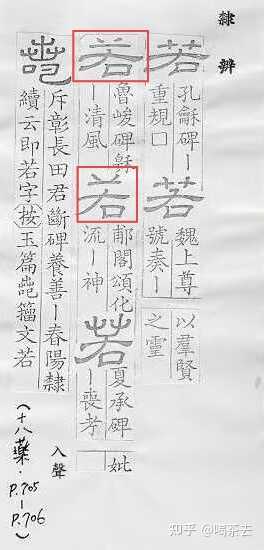 隸辨
若
孔龢碑｜
重規口
若
魏上尊
號奏｜
以羣賢
之靈
若
魯峻碑
｜清風
若
郙閣頌化
流｜神
若
夏承碑
｜喪孝
妣
斥彰長田君斷碑養善｜春陽隸
續云即若字按玉篇籀文若
入聲
(十八藥·P.705-P.706)
知乎 @喝茶去